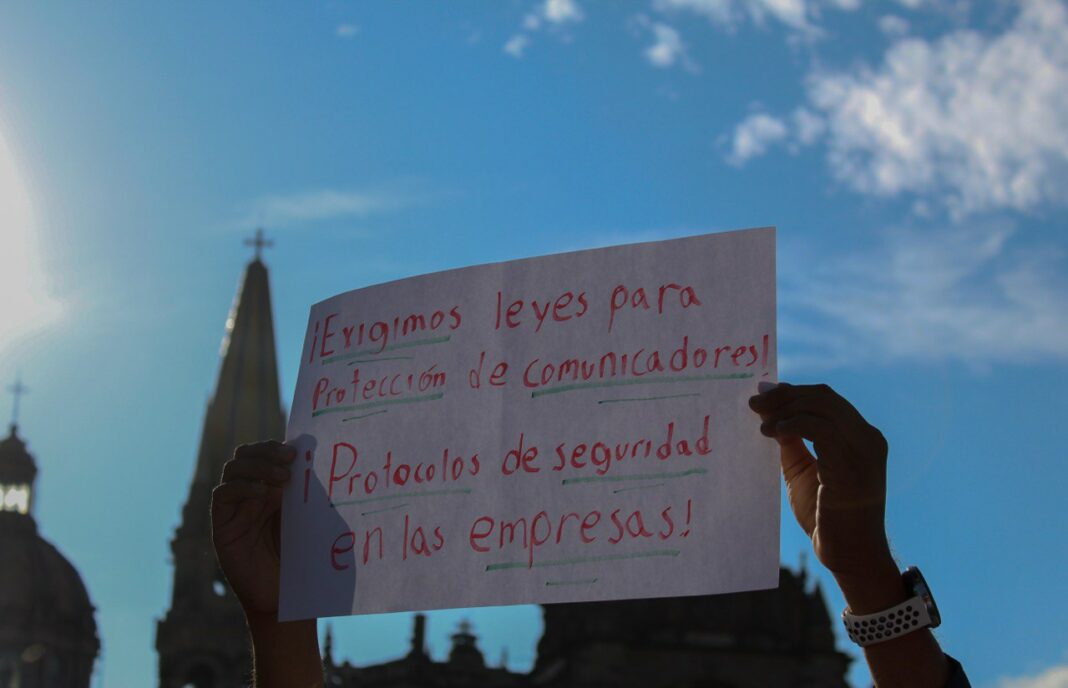 ¡Exigimos leyes para
Protección de comunicadores!
¡Protocolos de seguridad
en las empresas!